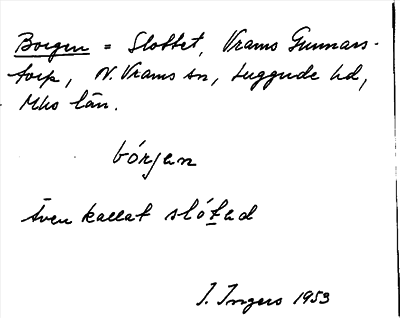 Borgen = Slottet, Vrams Gunnars-
torp, N. Vrams sn, Luggude hd,
Mhs län.
bórjan
Även kallat slótad
I. Ingers 1953